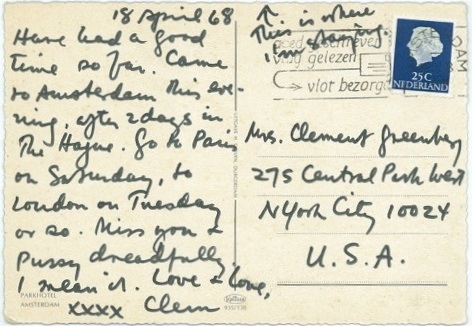 18 April 68.
Have had a good
time so far. Came
to Amsterdam this eve-
ning, after 2 days in
The Hague. Go to Paris
on Saturday, to
London on Tuesday
or so. Miss you &
Pussy dreadfully,
I mean it. Love & love,
xxxx Clem
PARKHOTEL
AMSTERDAM
↑.
This is where
I'm staying.
goed geschreven
vlug gelezen
vlot bezorgd
DAM
25C
NEDERLAND
Mrs. Clement Greenberg
275 Central Park West
NYork City 10024
U.S.A.